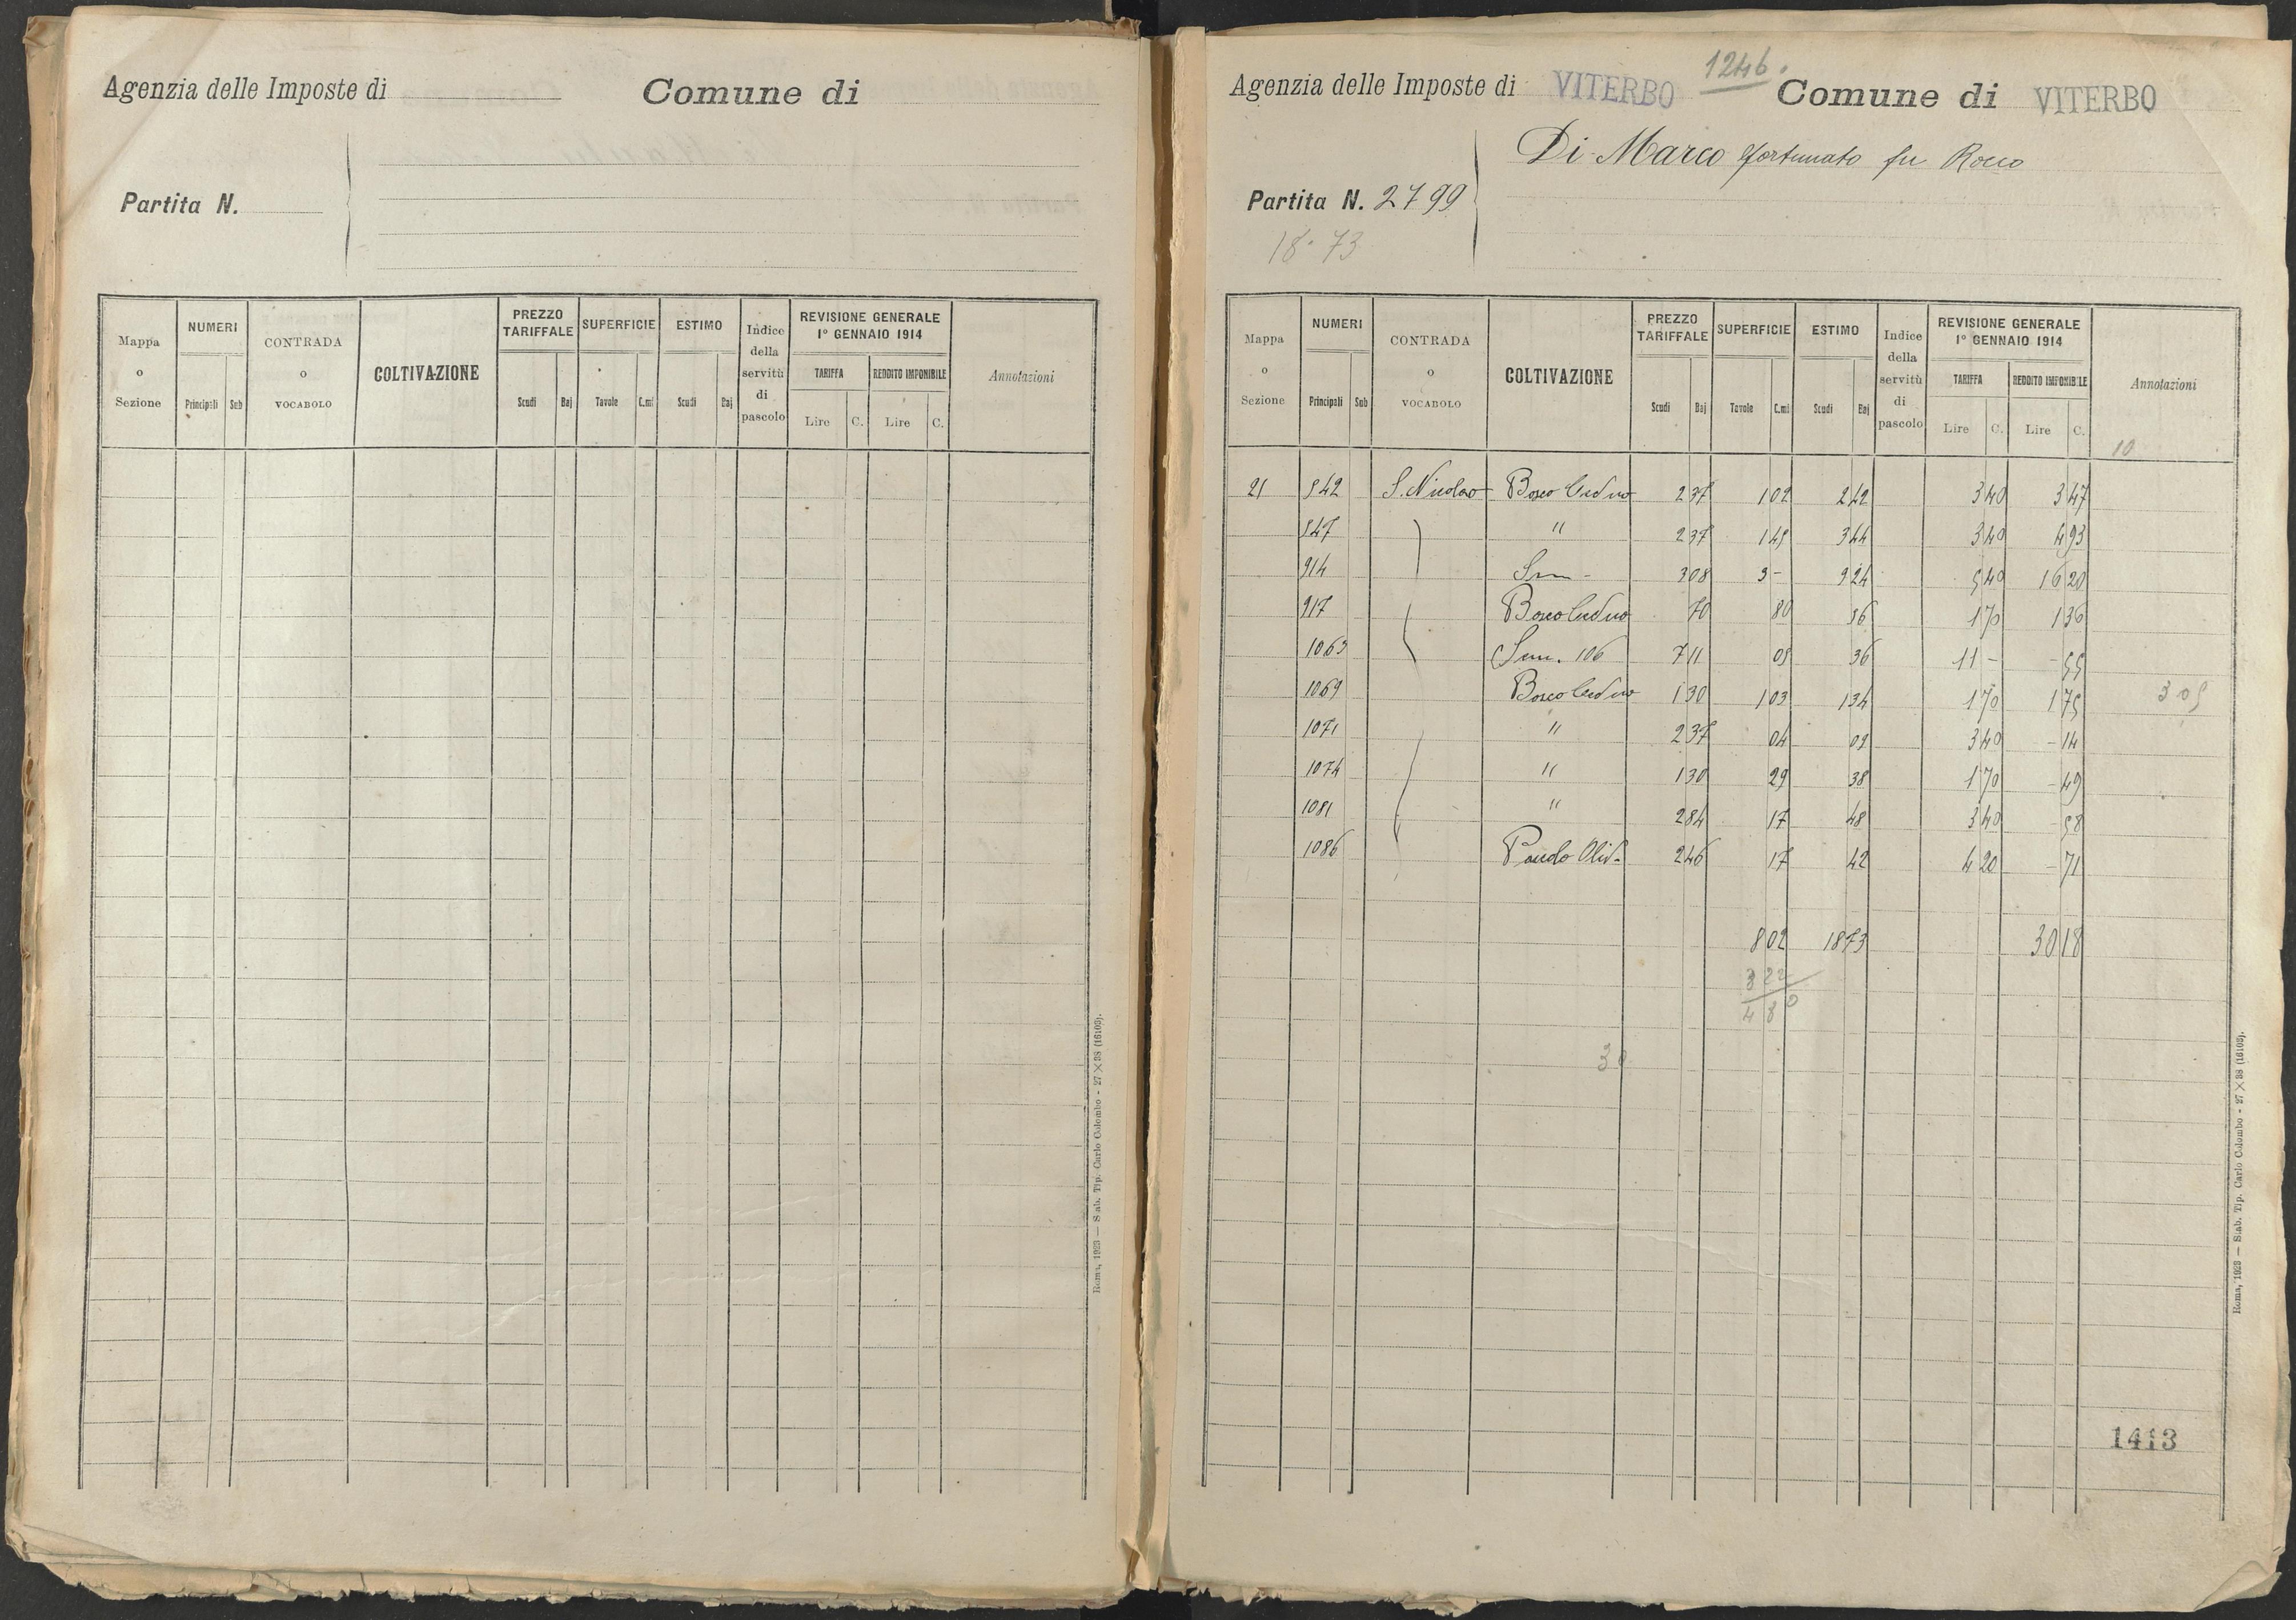 Agenzia delle Imposte di
Comune di
Partita N.
Mappa o Sezione | NUMERI Principali Sub | CONTRADA o VOCABOLO | COLTIVAZIONE | PREZZO TARIFFALE Scudi Baj | SUPERFICIE Tavole C.mi | ESTIMO Scudi Baj | Indice della servitù di pascolo | REVISIONE GENERALE 1° GENNAIO 1914 TARIFFA Lire C. REDDITO IMPONIBILE Lire C. | Annotazioni
Roma, 1923 — Stab. Tip. Carlo Colombo - 27×38 (16103).
1246.
Agenzia delle Imposte di VITERBO Comune di VITERBO
Di Marco Fortunato fu Rocco
Partita N. 2799
18.73
Mappa o Sezione | NUMERI Principali Sub | CONTRADA o VOCABOLO | COLTIVAZIONE | PREZZO TARIFFALE Scudi Baj | SUPERFICIE Tavole C.mi | ESTIMO Scudi Baj | Indice della servitù di pascolo | REVISIONE GENERALE 1° GENNAIO 1914 TARIFFA Lire C. REDDITO IMPONIBILE Lire C. | Annotazioni
10
21 542 S. Nicolao Bosco Ceduo 2 37 1 02 2 42 3 40 3 47
547 " 2 37 1 45 3 44 3 40 4 93
914 Sem 3 08 3 - 9 24 5 40 16 20
917 Bosco Ceduo 70 80 56 1 70 1 36
1065 Sem. 106 7 11 05 36 11 - - 55
1069 Bosco Ceduo 1 30 1 03 1 34 1 70 1 75 3 05
1071 " 2 37 04 09 3 40 - 14
1074 " 1 30 29 38 1 70 - 49
1081 " 2 84 17 48 3 40 - 58
1086 Pascolo Oliv. 2 46 17 42 4 20 - 71
8 02 18 73 30 18
3 22
4 80
30
1413
Roma, 1923 — Stab. Tip. Carlo Colombo - 27×38 (16103).